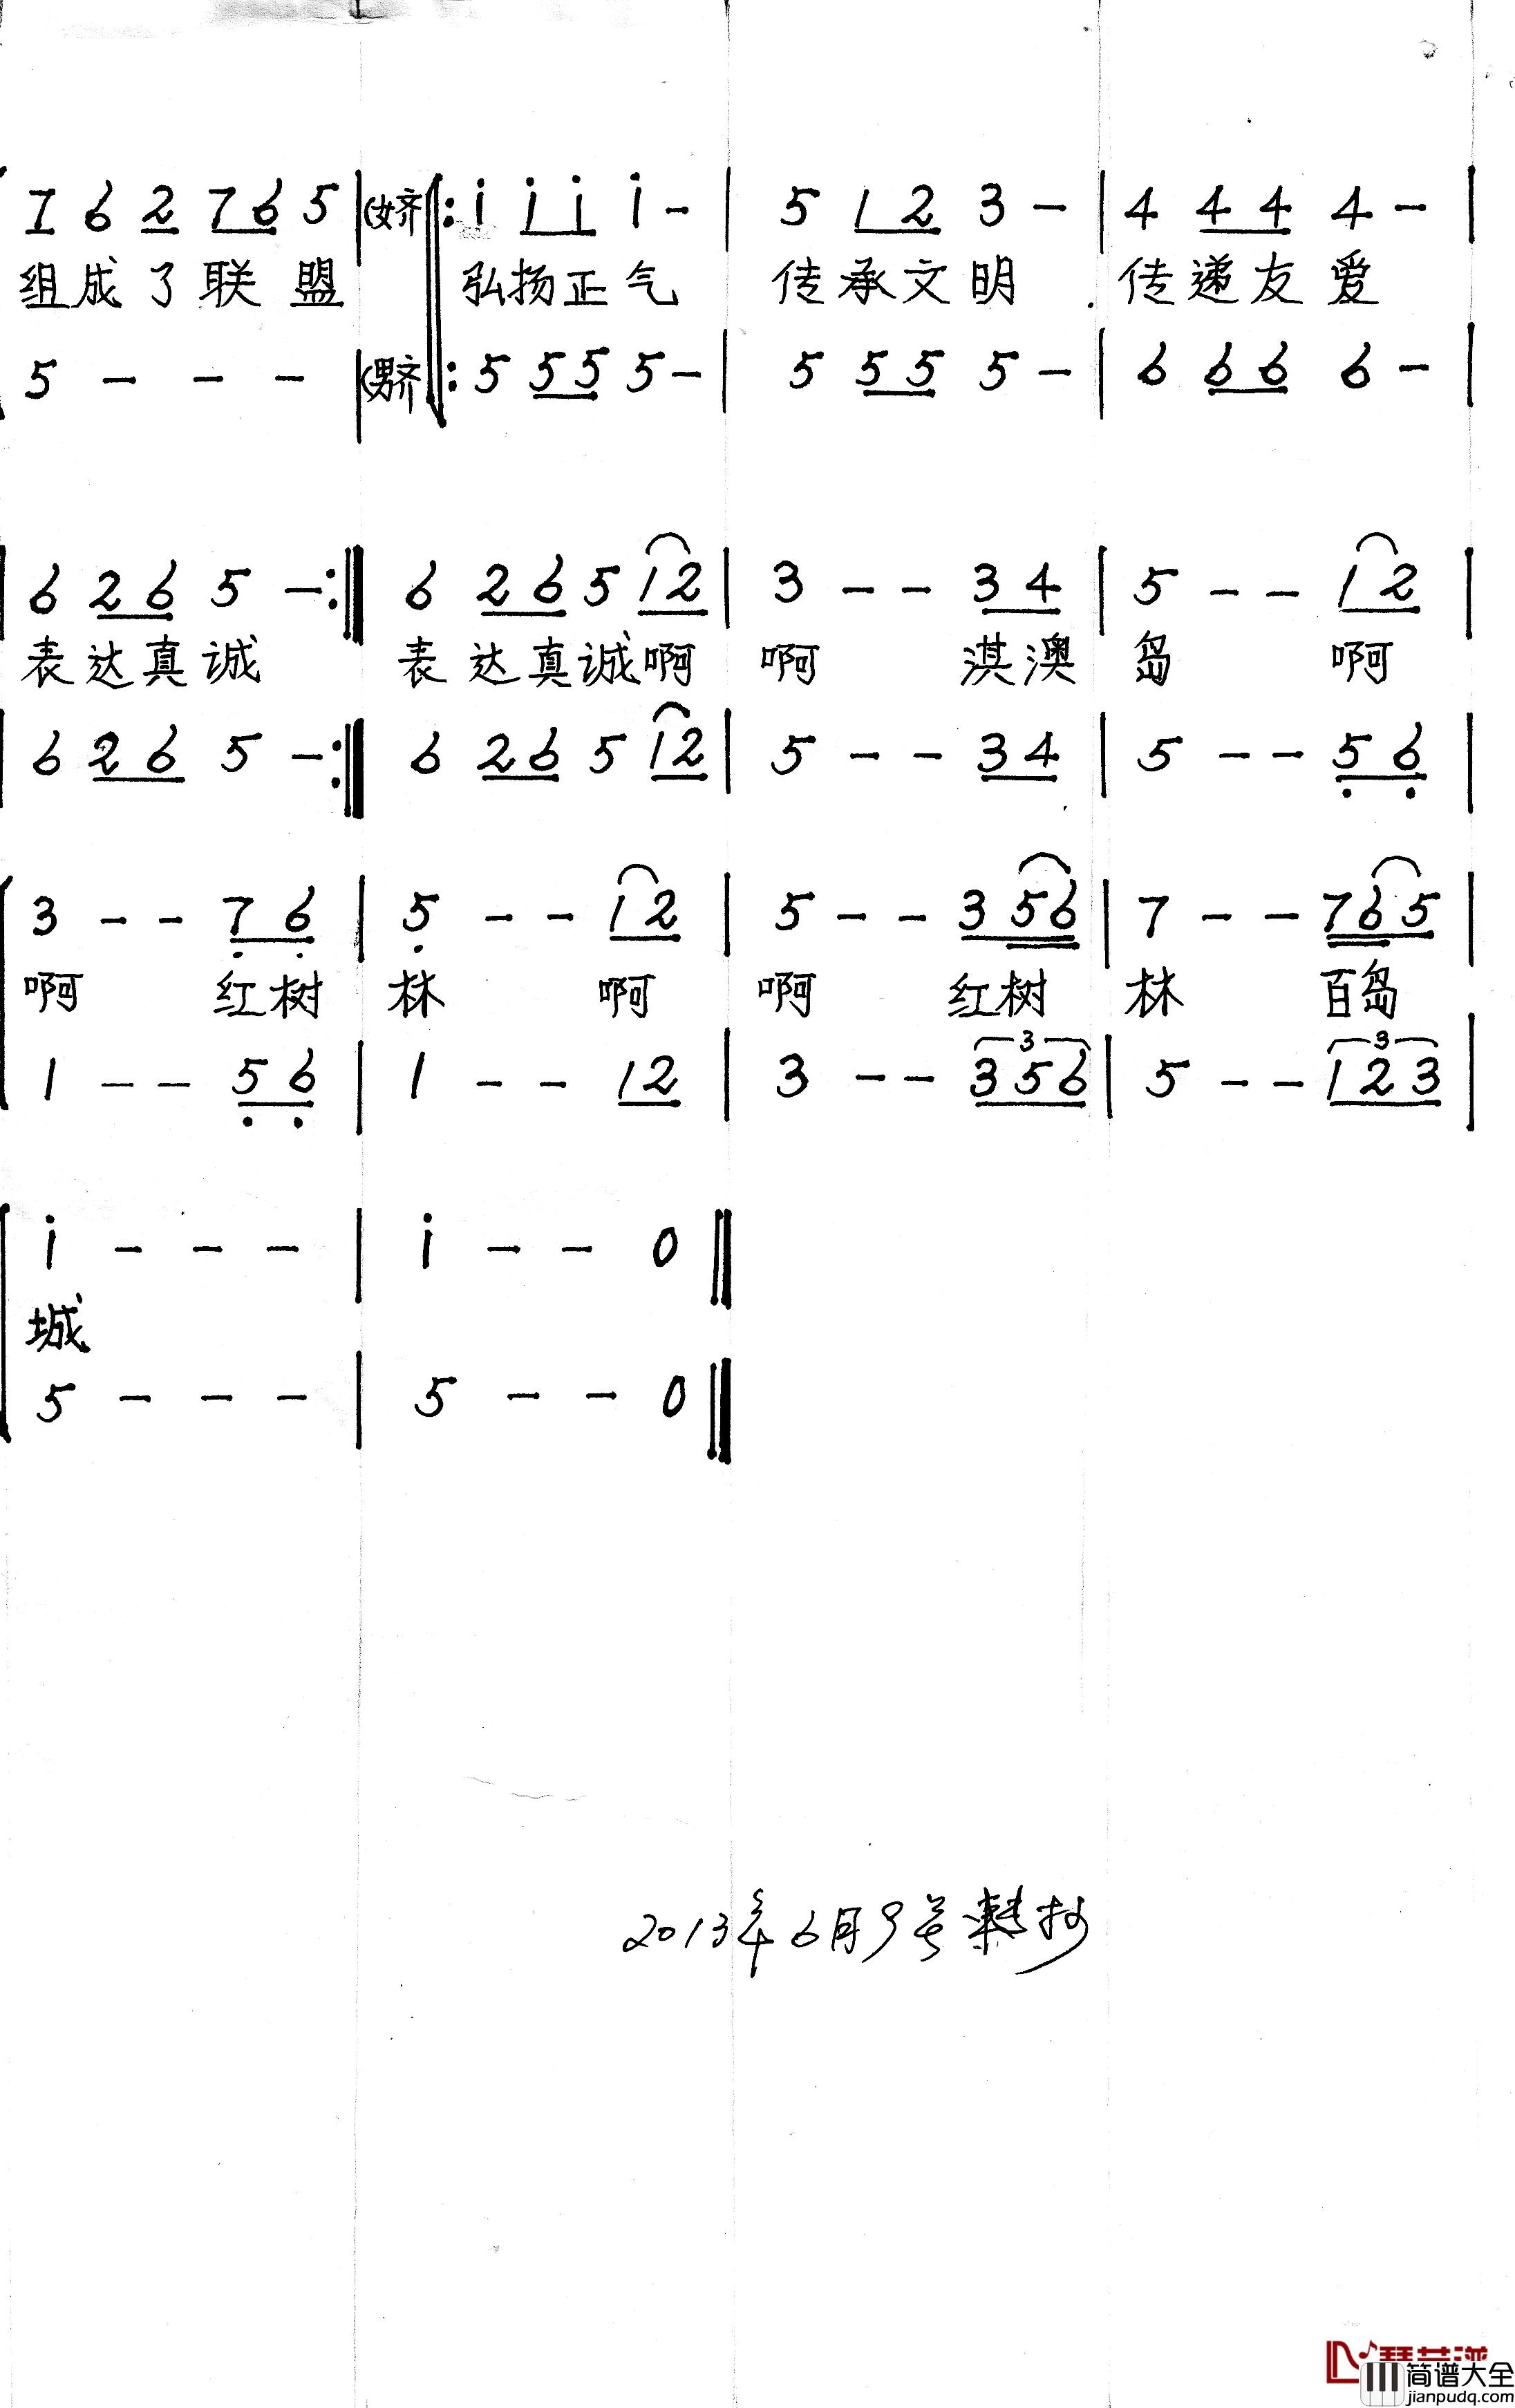 7 6 2 7 6 5 | (女齐) ‖: i i i i - | 5 1 2 3 - | 4 4 4 4 - |
组成了联盟 弘扬正气 传承文明 传递友爱
5 - - - | (男齐) ‖: 5 5 5 5 - | 5 5 5 5 - | 6 6 6 6 - |
6 2 6 5 - :‖ 6 2 6 5 1 2 | 3 - - 3 4 | 5 - - 1 2 |
表达真诚 表达真诚啊 啊 淇澳 岛 啊
6 2 6 5 - :‖ 6 2 6 5 1 2 | 5 - - 3 4 | 5 - - 5 6 |
3 - - 7 6 | 5 - - 1 2 | 5 - - 3 5 6 | 7 - - 7 6 5 |
啊 红树 林 啊 啊 红树 林 百岛
3 3
1 - - 5 6 | 1 - - 1 2 | 3 - - 3 5 6 | 5 - - 1 2 3 |
i - - - | i - - 0 ‖
城
5 - - - | 5 - - 0 ‖
2013年6月9号 抄
简谱大全
jianpudq.com